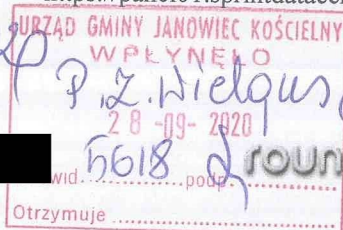 URZĄD GMINY JANOWIEC KOŚCIELNY
WPŁYNĘŁO
P. Z. Wielgus
28 -09- 2020
wid. 5618 podp.
roun
Otrzymuje